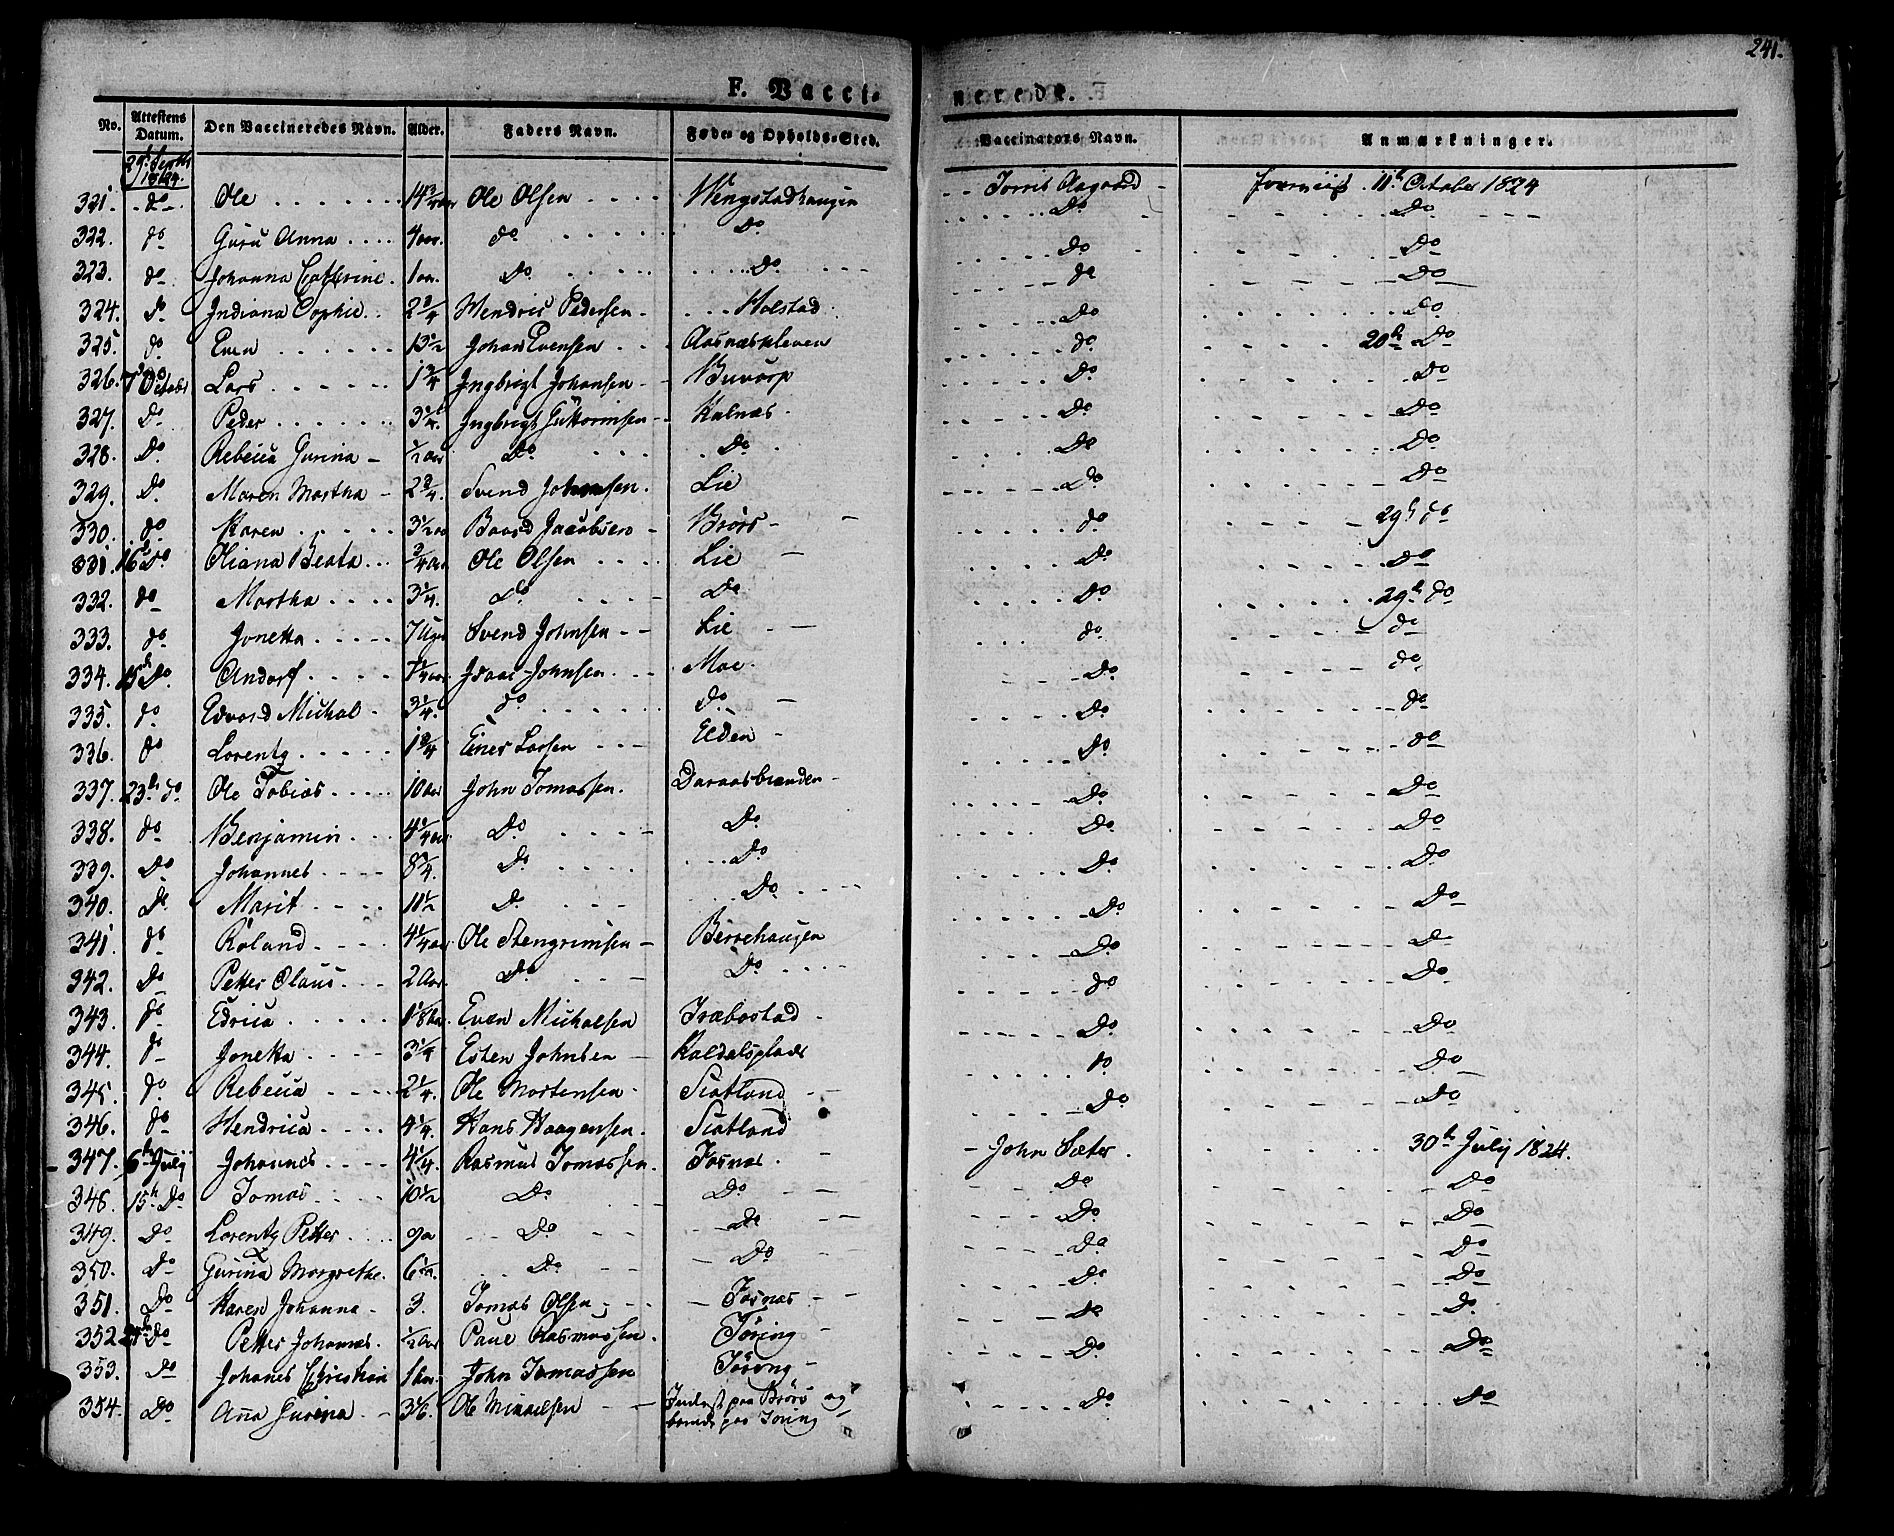 241.
F. Vaccinerede.
No. | Attestens Datum. | Den Vaccineredes Navn. | Alder. | Faders Navn. | Føde- og Opholds-Sted. | Vaccinators Navn. | Anmærkninger.
29d Septbr 1824.
321. do Ole 14 3/4 aar Ole Olsen Wengstadhaugen Torris Aagaard 11te October 1824
322. do Guru Anna 4 aar. do Do Do Do
323. do Johanna Cathrine 1 aar. Do Do Do Do
324. do Indiana Sophie 2 3/4 Hendric Pedersen Holstad do Do
325. do Even 13 1/2 Johan Evensen Aasnæskleven Do Do
326. 7de October Lars 1 3/4 Ingbrigt Johansen Buvarp do 20de Do
327. Do Peder 3 1/4 Ingbrigt Guttormsen Kalnæs Do Do
328. Do Rebecca Gurina 1/2 aar Do Do Do Do
329. Do Maren Martha 2 3/4 Svend Johnsen Lie Do Do
330. do Karen 3 1/2 aar Baard Jacobsen Brørs Do Do
331. 16de Do Oliana Beata 3/4 Aar Ole Olsen Lie do 29de do
332. do Martha 3 1/4 Do Do Do do
333. do Jonetta 7 Uger Svend Johnsen Lie Do 29de do
334. 15de Do Andorf 7 1/4 aar Isaac Johnsen Moe do do
335. do Edvard Michal 3 1/4 do do Do do
336. do Lorentz 1 3/4 Einer Larsen Elden Do do
337. 23de do Ole Tobias 10 aar John Tomassen Daraasbranden Do do
338. do Benjamin 4 1/4 aar Do Do Do Do
339. Do Johannes 8 3/4 Do Do Do Do
340. Do Marit 11 1/2 Do Do Do Do
341. do Roland 4 1/4 aar Ole Stengrimsen Berrehaugen Do Do
342. Do Petter Claus 2 Aar Do Do Do Do
343. do Edrica 1 1/8 aar Even Michalsen Træbostad do Do
344. do Jonetta 3 1/4 Esten Johnsen Kaldalsplads Do Do
345. do Rebecca 2 1/4 Ole Mortensen Scotland do Do
346. do Hendrica 4 1/4 Hans Haagensen Scotland Do Do
347. 6te July Johannes 4 1/4 Rasmus Tomassen Fosnæs John Sæter 30te July 1824.
348. 15de Do Tomas 10 1/2 Do Do Do Do
349. Do Lorentz Petter 9 a Do Do Do Do
350. Do Gurina Margrethe 6 aar Do Do Do Do
351. Do Karen Johanna 3. Tomas Olsen Fosnæs Do Do
352. do Petter Johannes 1/2 aar Paul Rasmussen Føring do Do
353. Do Johanes Christian 1 aar John Tomassen Føring Do Do
354. Do Anna Gurina 3 1/6 Ole Mikkelsen Inderst paa Brørs og boende paa Føring Do Do